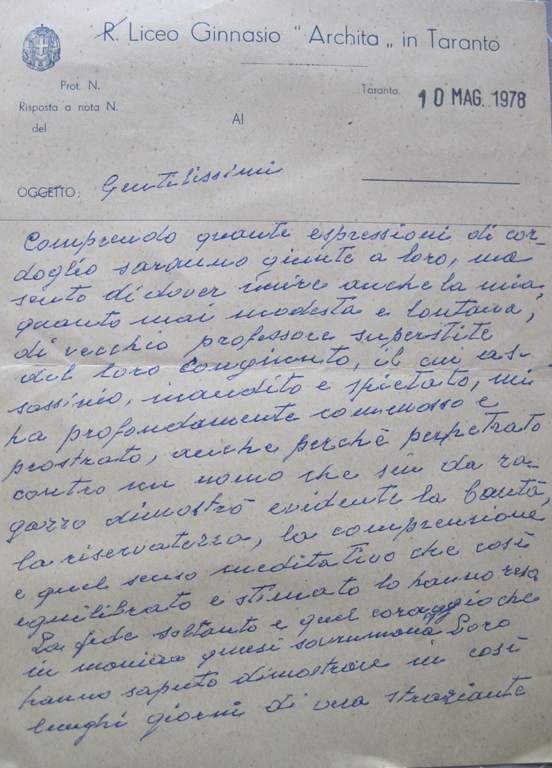 R. Liceo Ginnasio "Archita„ in Taranto
Prot. N.
Risposta a nota N.
del
Al
Taranto. 10 MAG. 1978
OGGETTO: Gentilissimi
Comprendo quante espressioni di cor-
doglio saranno giunte a loro, ma
sento di dover unire anche la mia,
quanto mai modesta e lontana,
di vecchio professore superstite
del loro Congiunto, il cui as-
sassinio, inaudito e spietato, mi
ha profondamente commosso e
prostrato, anche perchè perpetrato
contro un uomo che sin da ra-
gazzo dimostrò evidente la bontà,
la riservatezza, la comprensione
e quel senso meditativo che così
equilibrato e stimato lo hanno reso.
La fede soltanto e quel coraggio che
in maniera quasi sovrumana Loro
hanno saputo dimostrare in così
lunghi giorni di una straziante